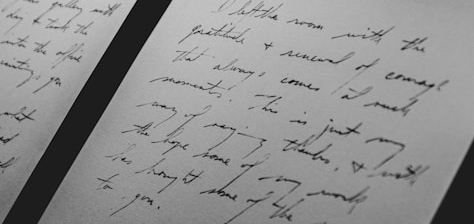 gallery with
day to took the
into the office
you
I left the room with the
gratitude & renewal of courage
that always comes (at such
moments. This is just my
way of saying thanks, & with
the hope some of my work
has brought some of the
to you.